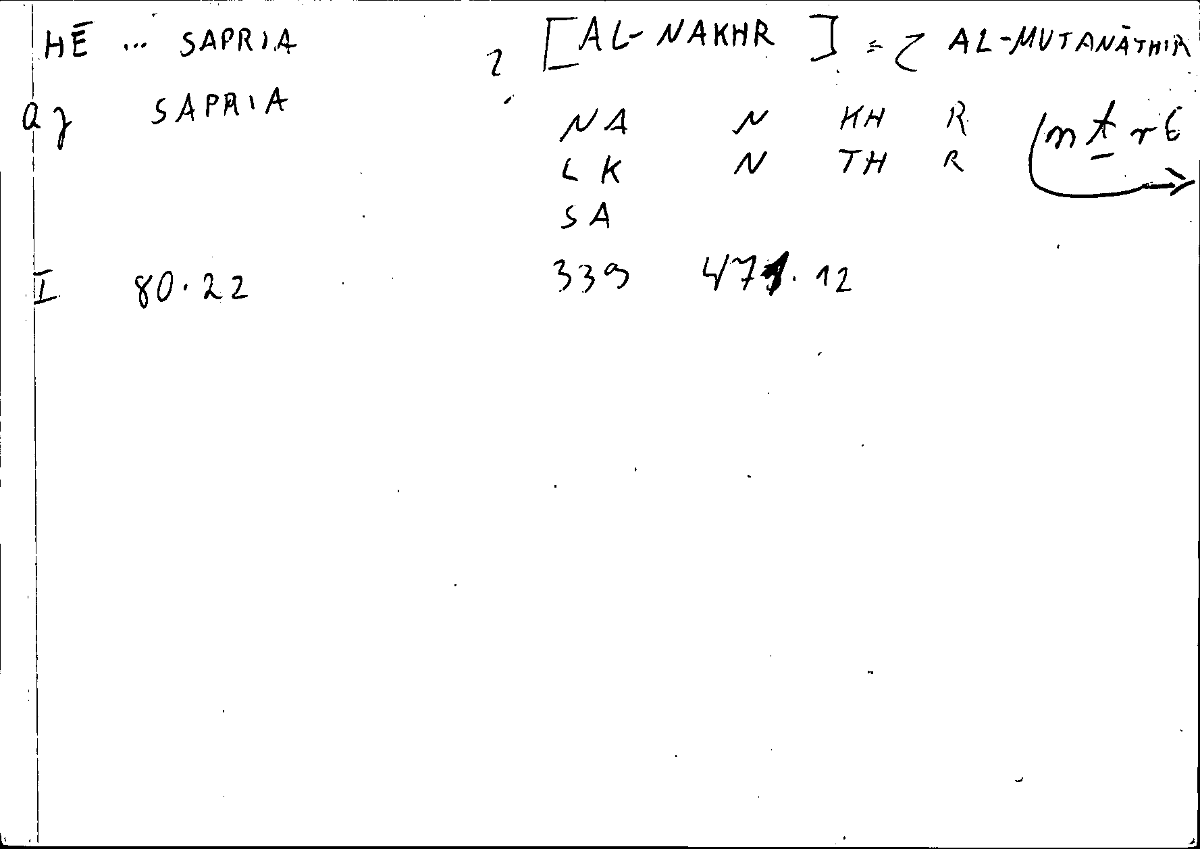 HĒ ... SAPRIA ? [AL-NAKHR] = AL-MUTANĀTHIR
SAPRIA NA N KH R
LK N TH R
SA
I 80.22 339 471.12